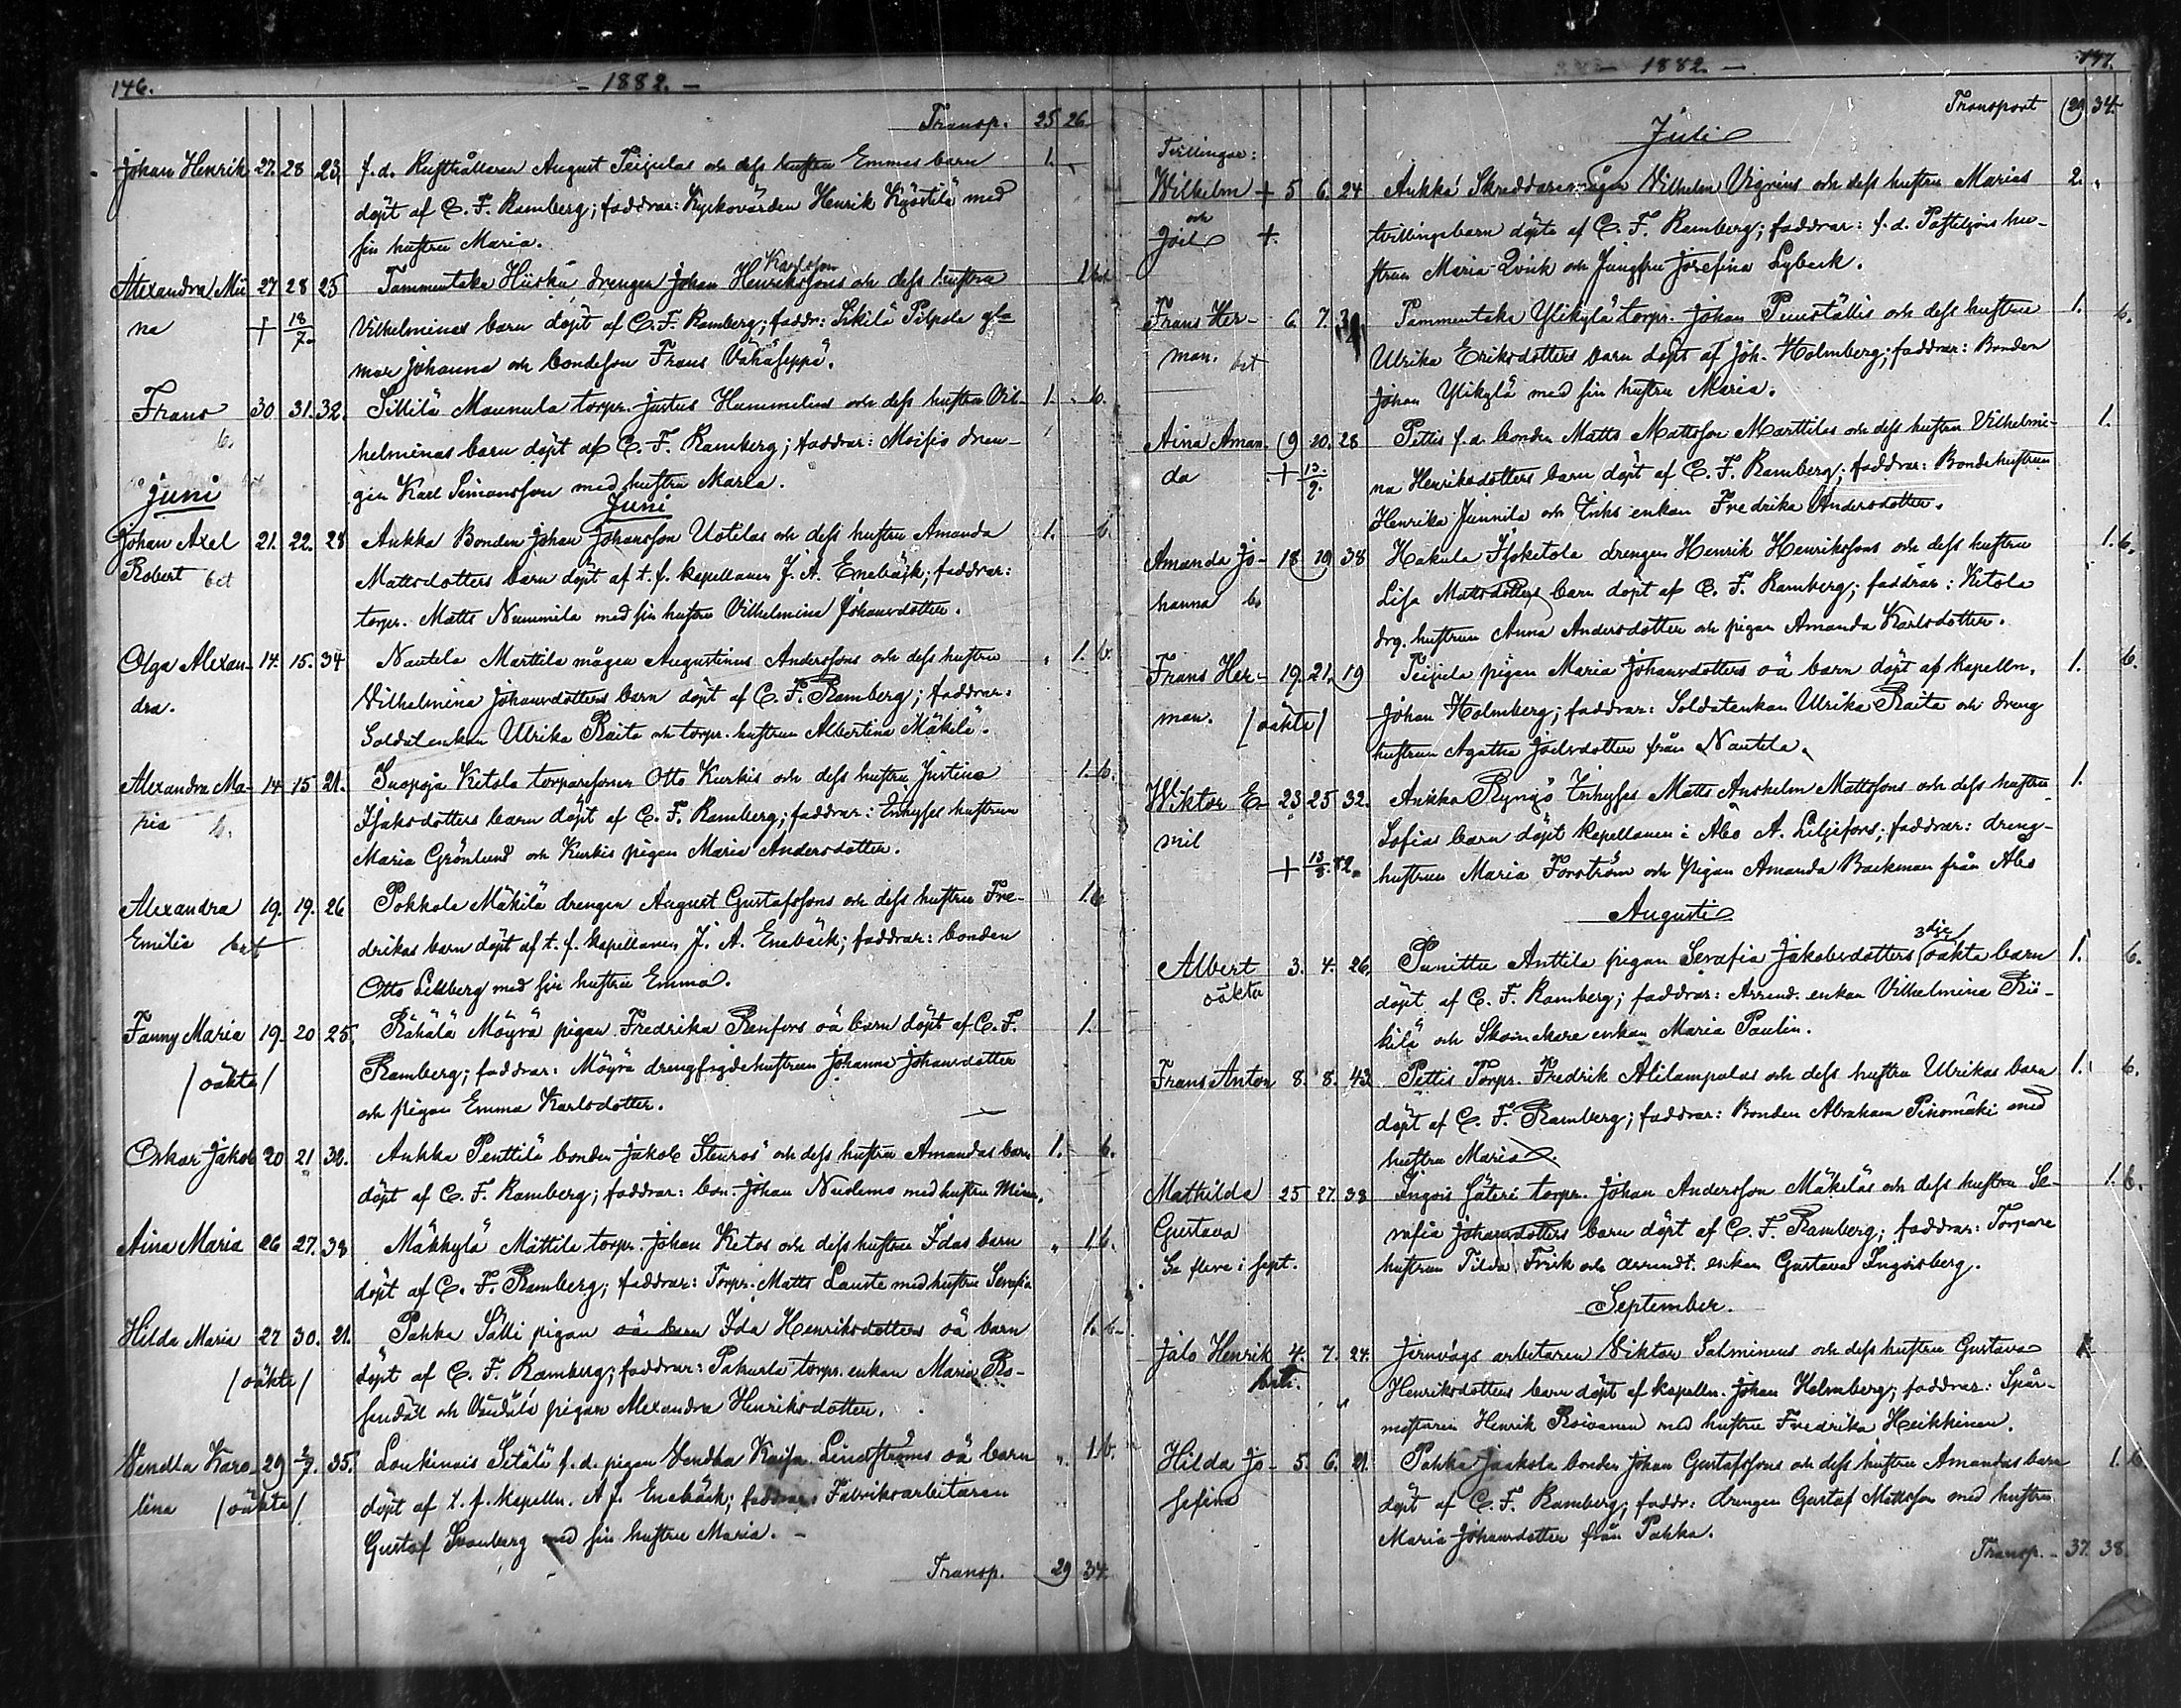 146. - 1882. -
Transp. 25 26
Johan Henrik 27. 28 23. f. d. Rusthållaren August Teijulas och dess hustru Emmas barn 1.
döpt af C. F. Ramberg; faddrar: Kyrkovärden Henrik Kyöstilä med
sin hustru Maria.
Karlsson
Alexandra Mii 27 28 25 Tammentaka Huiska drengen Johan Henrikssons och dess hustru 1
na + 18/7. Vilhelminas barn döpt af C. F. Ramberg; faddr: Sikilä Pilpola gla
mor Johanna och bondeson Frans Vähäseppä.
Frans 30 31. 32. Sillilä Maunula torpr. Justus Hummelins och dess hustru Vil- 1. b.
b. helminas barn döpt af C. F. Ramberg; faddrar: Moisio dren-
gen Karl Simonsson med hustru Maria.
Juni Juni
Johan Axel 21. 22. 28 Aukka Bonden Johan Johansson Uotilas och dess hustru Amanda 1. b.
Robert bet Mattsdotters barn döpt af t. f. kapellanen J. A. Enebäck; faddrar:
torpr. Matts Nummila med sin hustru Vilhelmina Johansdotter.
Olga Alexan- 14. 15. 34 Nautela Marttila mågen Augustinus Anderssons och dess hustru " 1. b.
dra. Vilhelmina Johansdotters barn döpt af C. F. Ramberg; faddrar:
Soldatenkan Ulrika Raita och torpr. hustrun Albertina Mäkelä.
Alexandra Ma- 14 15 21. Suopoja Ketola torparesonen Otto Kurkis och dess hustru Justina 1. b.
ria b. Isaksdotters barn döpt af C. F. Ramberg; faddrar: Inhyses hustrun
Maria Grönlund och Kurkis pigan Maria Andersdotter.
Alexandra 19. 19. 26 Pokkola Mäkilä drengen August Gustafssons och dess hustru Fre- " 1. b
Emilia bet drikas barn döpt af t. f. kapellanen J. A. Enebäck; faddrar: bonden
Otto Lillberg med sin hustru Emma.
Fanny Maria 19. 20 25. Rähälä Möyrä pigan Fredrika Renfors oä barn döpt af C. F. 1.
/oäkta/ Ramberg; faddrar: Möyrä drengfogdehustrun Johanna Johansdotter
och pigan Emma Karlsdotter.
Oskar Jakob 20 21 32. Aukka Penttilä bonden Jakob Stenros' och dess hustru Amandas barn 1. b.
döpt af C. F. Ramberg; faddrar: bon. Johan Nuolemo med hustru Mina.
Aina Maria 26 27. 38 Mäkkylä Mattila torpr. Johan Ketos och dess hustru Idas barn " 1. b.
döpt af C. F. Ramberg; faddrar: Torpr. Matts Lauste med hustru Serafia
Hilda Maria 27 30. 21. Pahka Sälli pigan oä barn Ida Henriksdotters oä barn 1. b.
/oäkta/ döpt af C. F. Ramberg; faddrar: Pakurla torpr. enkan Maria Ro-
sendal och pigan Alexandra Henriksdotter.
Vendla Karo- 29 2/7. 35. Loukinais Setälä f. d. pigan Vendla Kaisa Lindströms oä barn ". 1. b.
lina /oäkta/ döpt af t. f. kapelln. A J. Enebäck; faddrar: Fabriksarbetaren
Gustaf Svanberg med sin hustru Maria. -
Transp. 29 34.
- 1882. - 147.
Transport 29 34.
Juli
Tvillingar:
Wilhelm + 5 6. 24 Aukka Skreddaremågen Vilhelm Vigrens och dess hustrus Marias 2. "
och tvillingabarn döpte af C. F. Ramberg; faddrar: f. d. Postiljons hu-
Joel + strun Maria Qvick och Jungfru Josefina Lybeck.
Frans Her- 6 7. Tammentaka Ylikylä torpr. Johan Punställis och dess hustru 1. b.
man. bet Ulrika Eriksdotters barn döpt af Joh. Holmberg; faddrar: Bonden
Johan Ylikylä med sin hustru Maria.
Aina Aman- 9 20. 28 Pettis f. d. bonden Matts Mattsson Marttilas och dess hustru Vilhelmi- 1.
da + 13/9. na Henriksdotters barn döpt af C. F. Ramberg; faddrar: Bondehustrun
Henrika Junnila och Inhs enkan Fredrika Andersdotter.
Amanda Jo- 18 19 38 Hakula Isoketola drengen Henrik Henrikssons och dess hustru 1. b.
hanna b Lisa Mattsdotters barn döpt af C. F. Ramberg; faddrar: Ketola
drg. hustrun Anna Andersdotter och pigan Amanda Karlsdotter.
Frans Her- 19. 21. 19 Teijula pigan Maria Johansdotters oä barn döpt af kapelln. 1. b.
man. /oäkta/ Johan Holmberg; faddrar: Soldatenkan Ulrika Raita och dreng
hustrun Agatha Joelsdotter från Nautela.
Wiktor E- 23 25 32. Aukka Ryngö Inhyses Matts Anshelm Mattssons och dess hustru 1.
mil Sofias barn döpt kapellanen i Åbo A. Liljefors; faddrar: dreng-
+ 13/8. 82. hustrun Maria Forström och pigan Amanda Backman från Åbo
Augusti
3dje
Albert 3. 4. 26. Punittu Anttila pigan Serafia Jakobsdotters oäkta barn 1. b.
oäkta döpt af C. F. Ramberg; faddrar: Arrend. enkan Vilhelmina Rii-
kilä och Skomakare enkan Maria Paulin.
Frans Anton 8. 8. 43 Pettis Torpr. Fredrik Alilampolas och dess hustru Ulrikas barn 1. b.
döpt af C. F. Ramberg; faddrar: Bonden Abraham Pinomäki med
hustru Maria.
Mathilda 25 27. 38 Ingois Säteri torpr. Johan Andersson Mäkeläs och dess hustru Se- 1. b.
Gustava rafia Johansdotters barn döpt af C. F. Ramberg; faddrar: Torpare
Se flere i sept. hustrun Tilda Frisk och arrendt. enkan Gustava Ingoisberg.
September.
Jalo Henrik 4. 7. 24. Jernvägs arbetaren Viktor Salminens och dess hustru Gustava 1.
Henriksdotters barn döpt af kapelln. Johan Holmberg; faddrar: Spår-
mästaren Henrik Roivanen med hustru Fredrika Heikkinen.
Hilda Jo- 5. 6. 21. Pahka Jaakola bonden Johan Gustafssons och dess hustru Amandas barn 1. b
sefina döpt af C. F. Ramberg; faddr: drengen Gustaf Mattsson med hustru
Maria Johansdotter från Pahka.
Transp. - 37. 38.